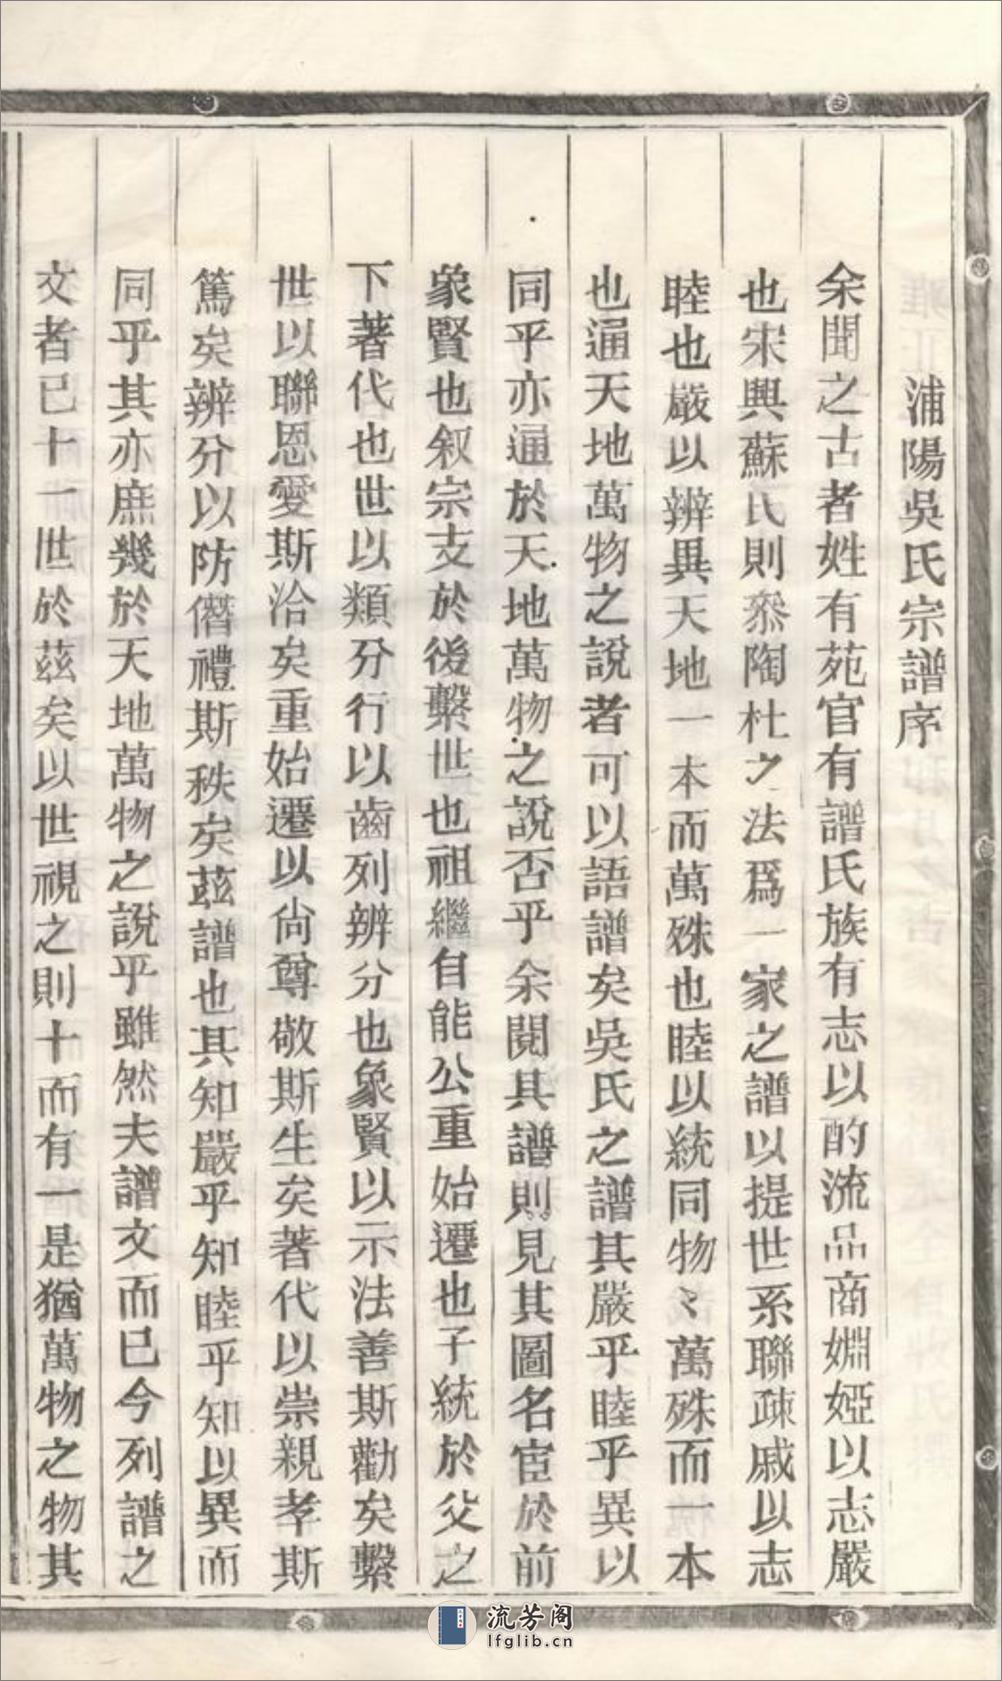 浦陽吳氏宗譜序
余聞之古者姓有苑官有譜氏族有志以酌流品商婣婭以志嚴
也宋興蘇氏則叅陶杜之法爲一家之譜以提世系聯疎戚以志
睦也嚴以辨異天地一本而萬殊也睦以統同物〻萬殊而一本
也通天地萬物之說者可以語譜矣吳氏之譜其嚴乎睦乎異以
同乎亦通於天地萬物之說否乎余閱其譜則見其圖名宦於前
象賢也叙宗支於後繫世也祖繼自能公重始遷也子統於父之
下著代也世以類分行以齒列辨分也象賢以示法善斯勸矣繫
世以聯恩愛斯洽矣重始遷以尙尊敬斯生矣著代以崇親孝斯
篤矣辨分以防僭禮斯秩矣茲譜也其知嚴乎知睦乎知以異而
同乎其亦庶幾於天地萬物之說乎雖然夫譜文而已今列譜之
文者已十一世於茲矣以世視之則十而有一是猶萬物之物其
流芳阁
lfglib.cn